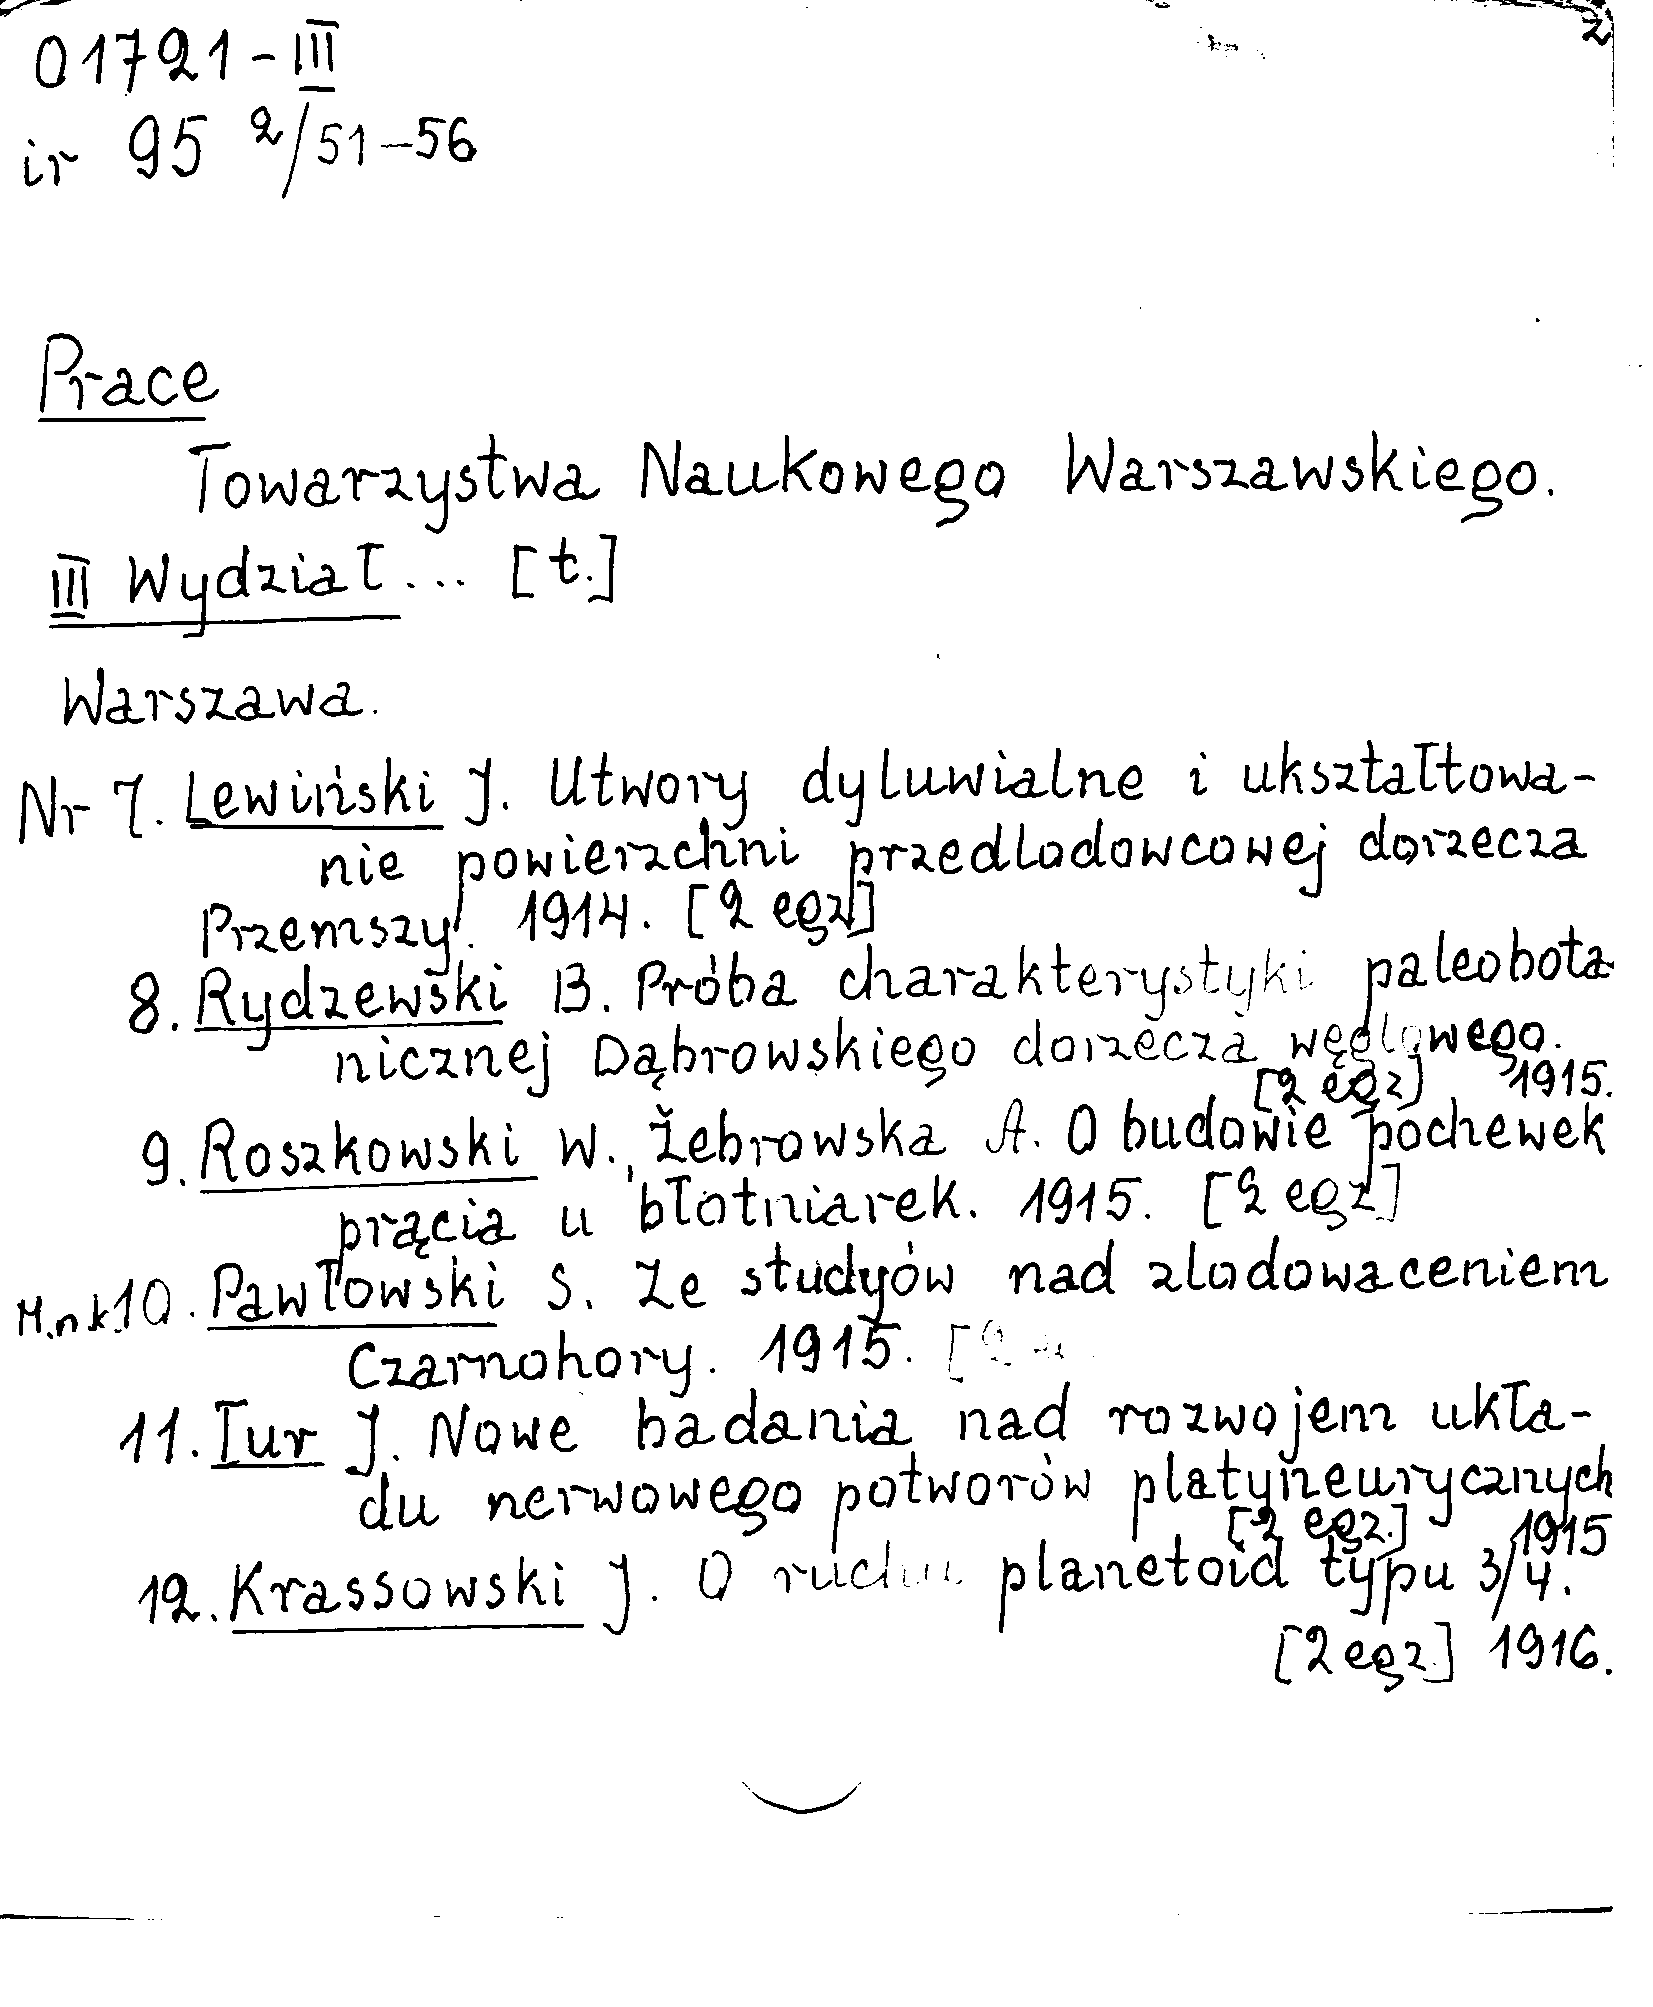 2
01721-III
ir 95 2/51-56
Prace
Towarzystwa Naukowego Warszawskiego.
III Wydział... [t.]
Warszawa.
Nr 7. Lewiński J. Utwory dyluwialne i ukształtowa-
nie powierzchni przedlodowcowej dorzecza
Przemszy. 1914. [2 egz]
8. Rydzewski B. Próba charakterystyki paleobota-
nicznej Dąbrowskiego dorzecza węglowego.
[2 egz] 1915.
9. Roszkowski W., Żebrowska A. O budowie pochewek
prącia u błotniarek. 1915. [2 egz]
M.n.k. 10. Pawłowski S. Ze studyów nad zlodowaceniem
Czarnohory. 1915. [2
11. Tur J. Nowe badania nad rozwojem ukła-
du nerwowego potworów platyneurycznych
[2 egz.] 1915
12. Krassowski J. O ruchu planetoid typu 3/4.
[2 egz.] 1916.